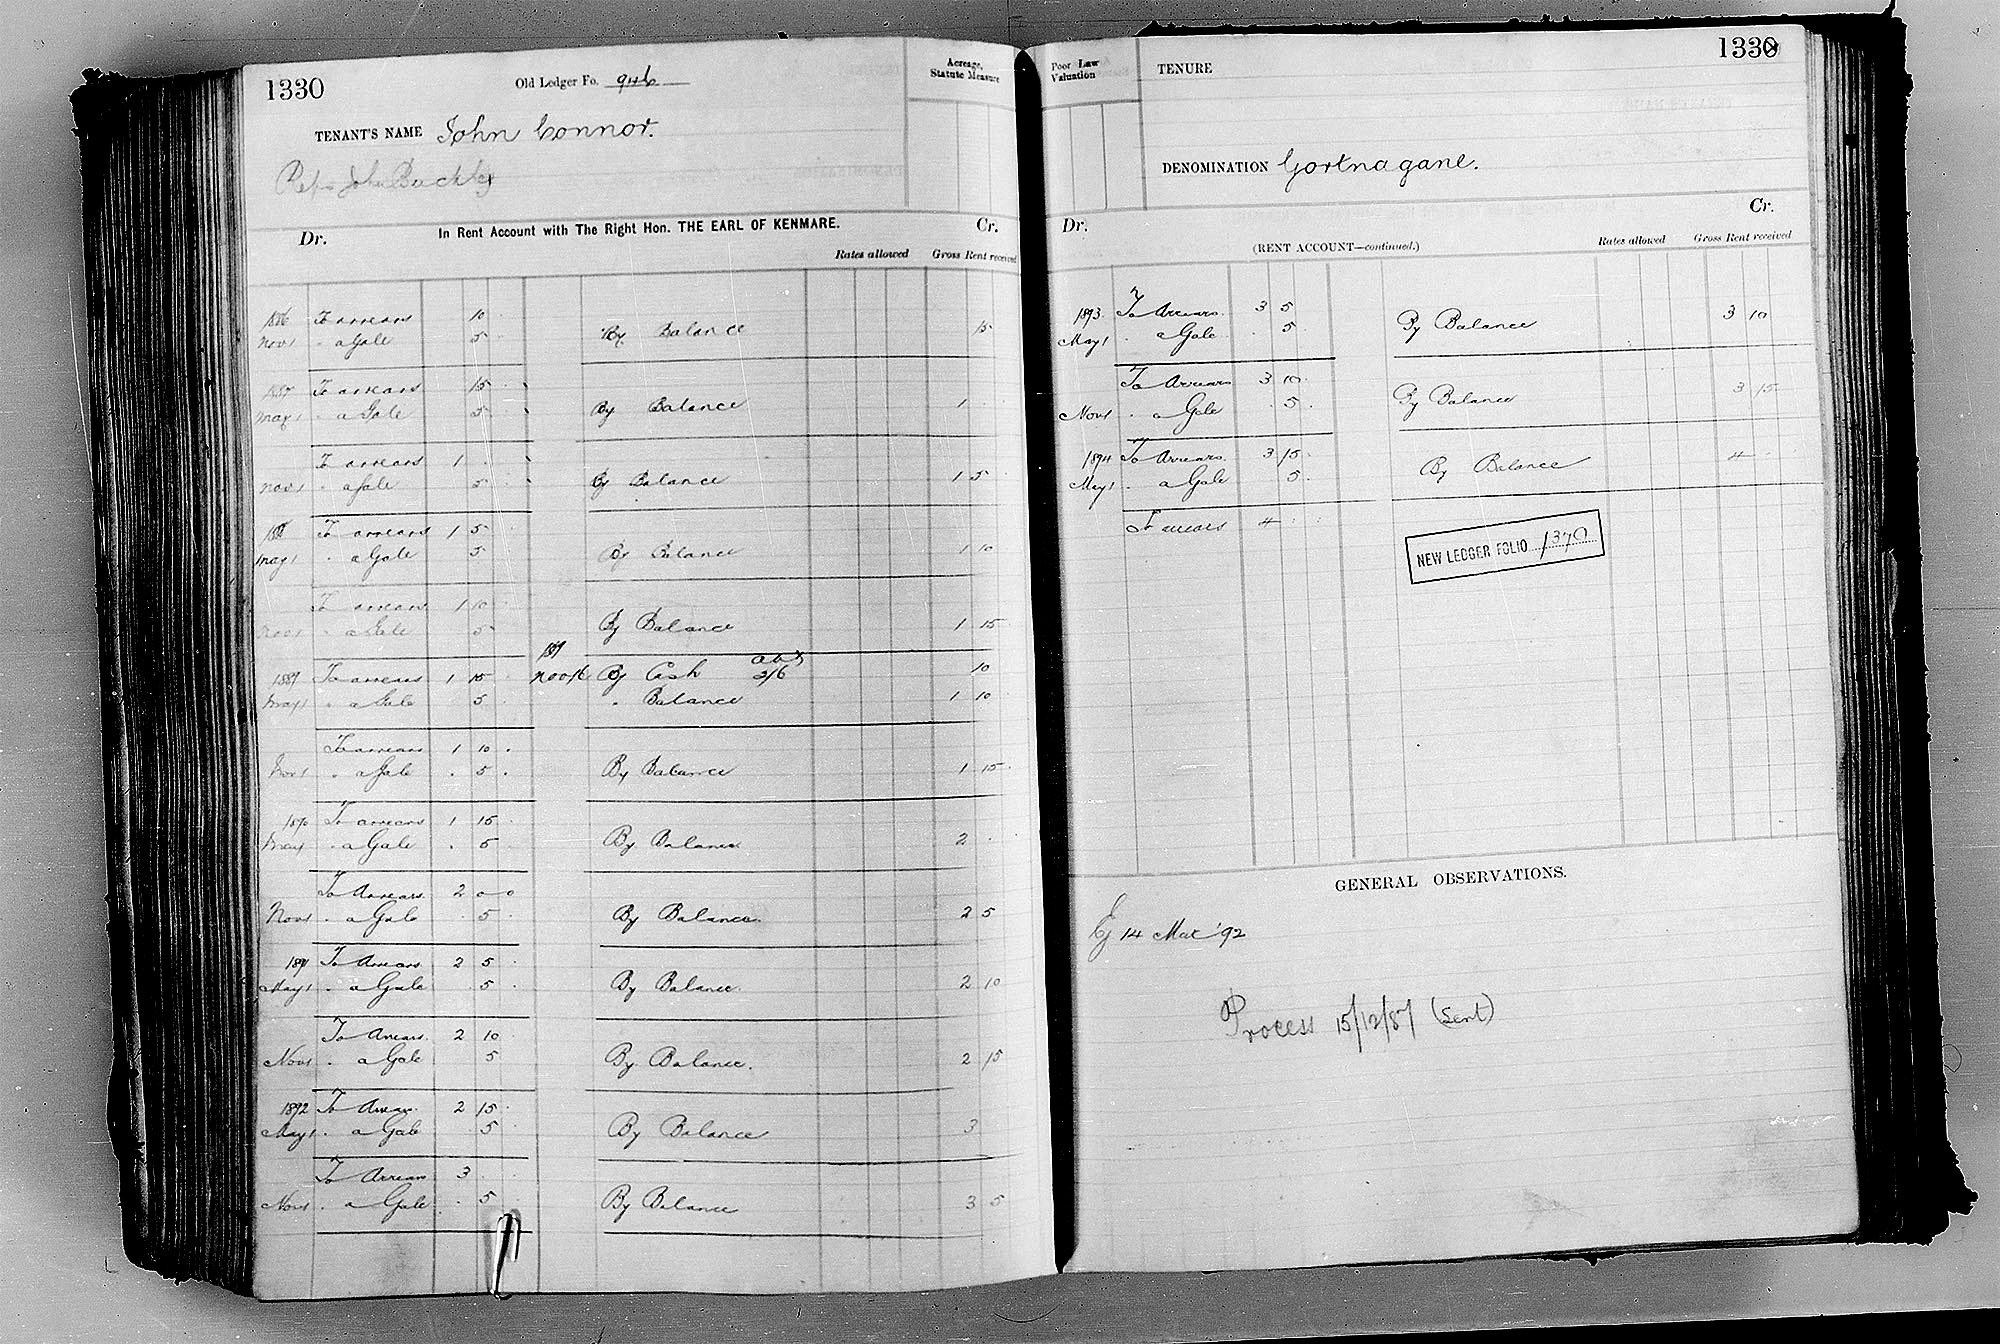 1330
Old Ledger Fo. 946
Acreage, Statute Measure
TENANT'S NAME John Connor.
Reps John Buckley
In Rent Account with The Right Hon. THE EARL OF KENMARE.
Dr. Cr.
Rates allowed Gross Rent received
1886 To arrears 10
Nov 1 " a Gale 5 By Balance 15
1887 To arrears 15
May 1 " a Gale 5 By Balance 1
To arrears 1
Nov 1 " a Gale 5 By Balance 1 5
1888 To arrears 1 5
May 1 " a Gale 5 By Balance 1 10
To arrears 1 10
Nov 1 " a Gale 5 By Balance 1 15
1889 To arrears 1 15 1889 Nov 16 By Cash 10
May 1 " a Gale 5 " Balance 1 10
To arrears 1 10
Nov 1 " a Gale 5 By Balance 1 15
1890 To arrears 1 15
May 1 " a Gale 5 By Balance 2
To Arrears 2 0 0
Nov 1 " a Gale 5 By Balance 2 5
1891 To Arrears 2 5
May 1 " a Gale 5 By Balance 2 10
To Arrears 2 10
Nov 1 " a Gale 5 By Balance. 2 15
1892 To Arrears 2 15
May 1 " a Gale 5 By Balance 3
To Arrears 3
Nov 1 " a Gale 5 By Balance 3 5
1330
Poor Law Valuation
TENURE
DENOMINATION Gortnagane.
Dr. Cr.
(RENT ACCOUNT—continued.)
Rates allowed Gross Rent received
1893 To Arrears 3 5
May 1 " a Gale 5 By Balance 3 10
To Arrears 3 10
Nov 1 " a Gale 5 By Balance 3 15
1894 To Arrears 3 15
May 1 " a Gale 5 By Balance 4
To arrears 4
NEW LEDGER FOLIO 1370
GENERAL OBSERVATIONS.
Ej 14 Mar '92
Process 15/12/87 (Sent)